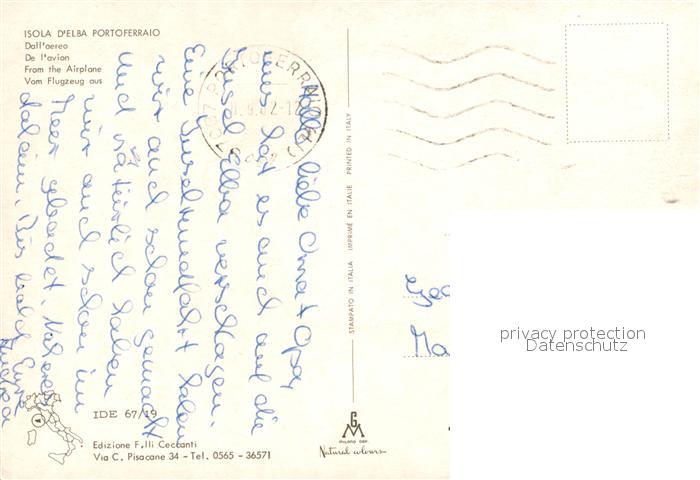 ISOLA D'ELBA PORTOFERRAIO
Dall'aereo
De l'avion
From the Airplane
Vom Flugzeug aus
Hallo, liebe Oma + Opa,
uns hat es auch auf die
Insel Elba verschlagen.
Eine Inselrundfahrt haben
wir auch schon gemacht
und natürlich haben
wir auch schon im
Meer gebadet. Näheres
daheim. Bis bald Eure
Andrea
PORTOFERRAIO
STAMPATO IN ITALIA IMPRIMÉ EN ITALIE PRINTED IN ITALY
IDE 67/19
Edizione F.lli Ceccanti
Via C. Pisacane 34 - Tel. 0565 - 36571
GM
MILANO DEP.
Natural colours
Ma
privacy protection
Datenschutz